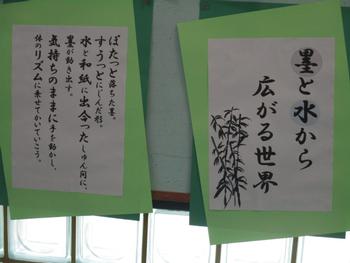 墨と水から
広がる世界
ぽたっと落ちた墨。
すうっとにじんだ形。
水と和紙に出合ったしゅん間に、
墨が動き出す。
気持ちのままに手を動かし、
体のリズムに乗せてかいていこう。